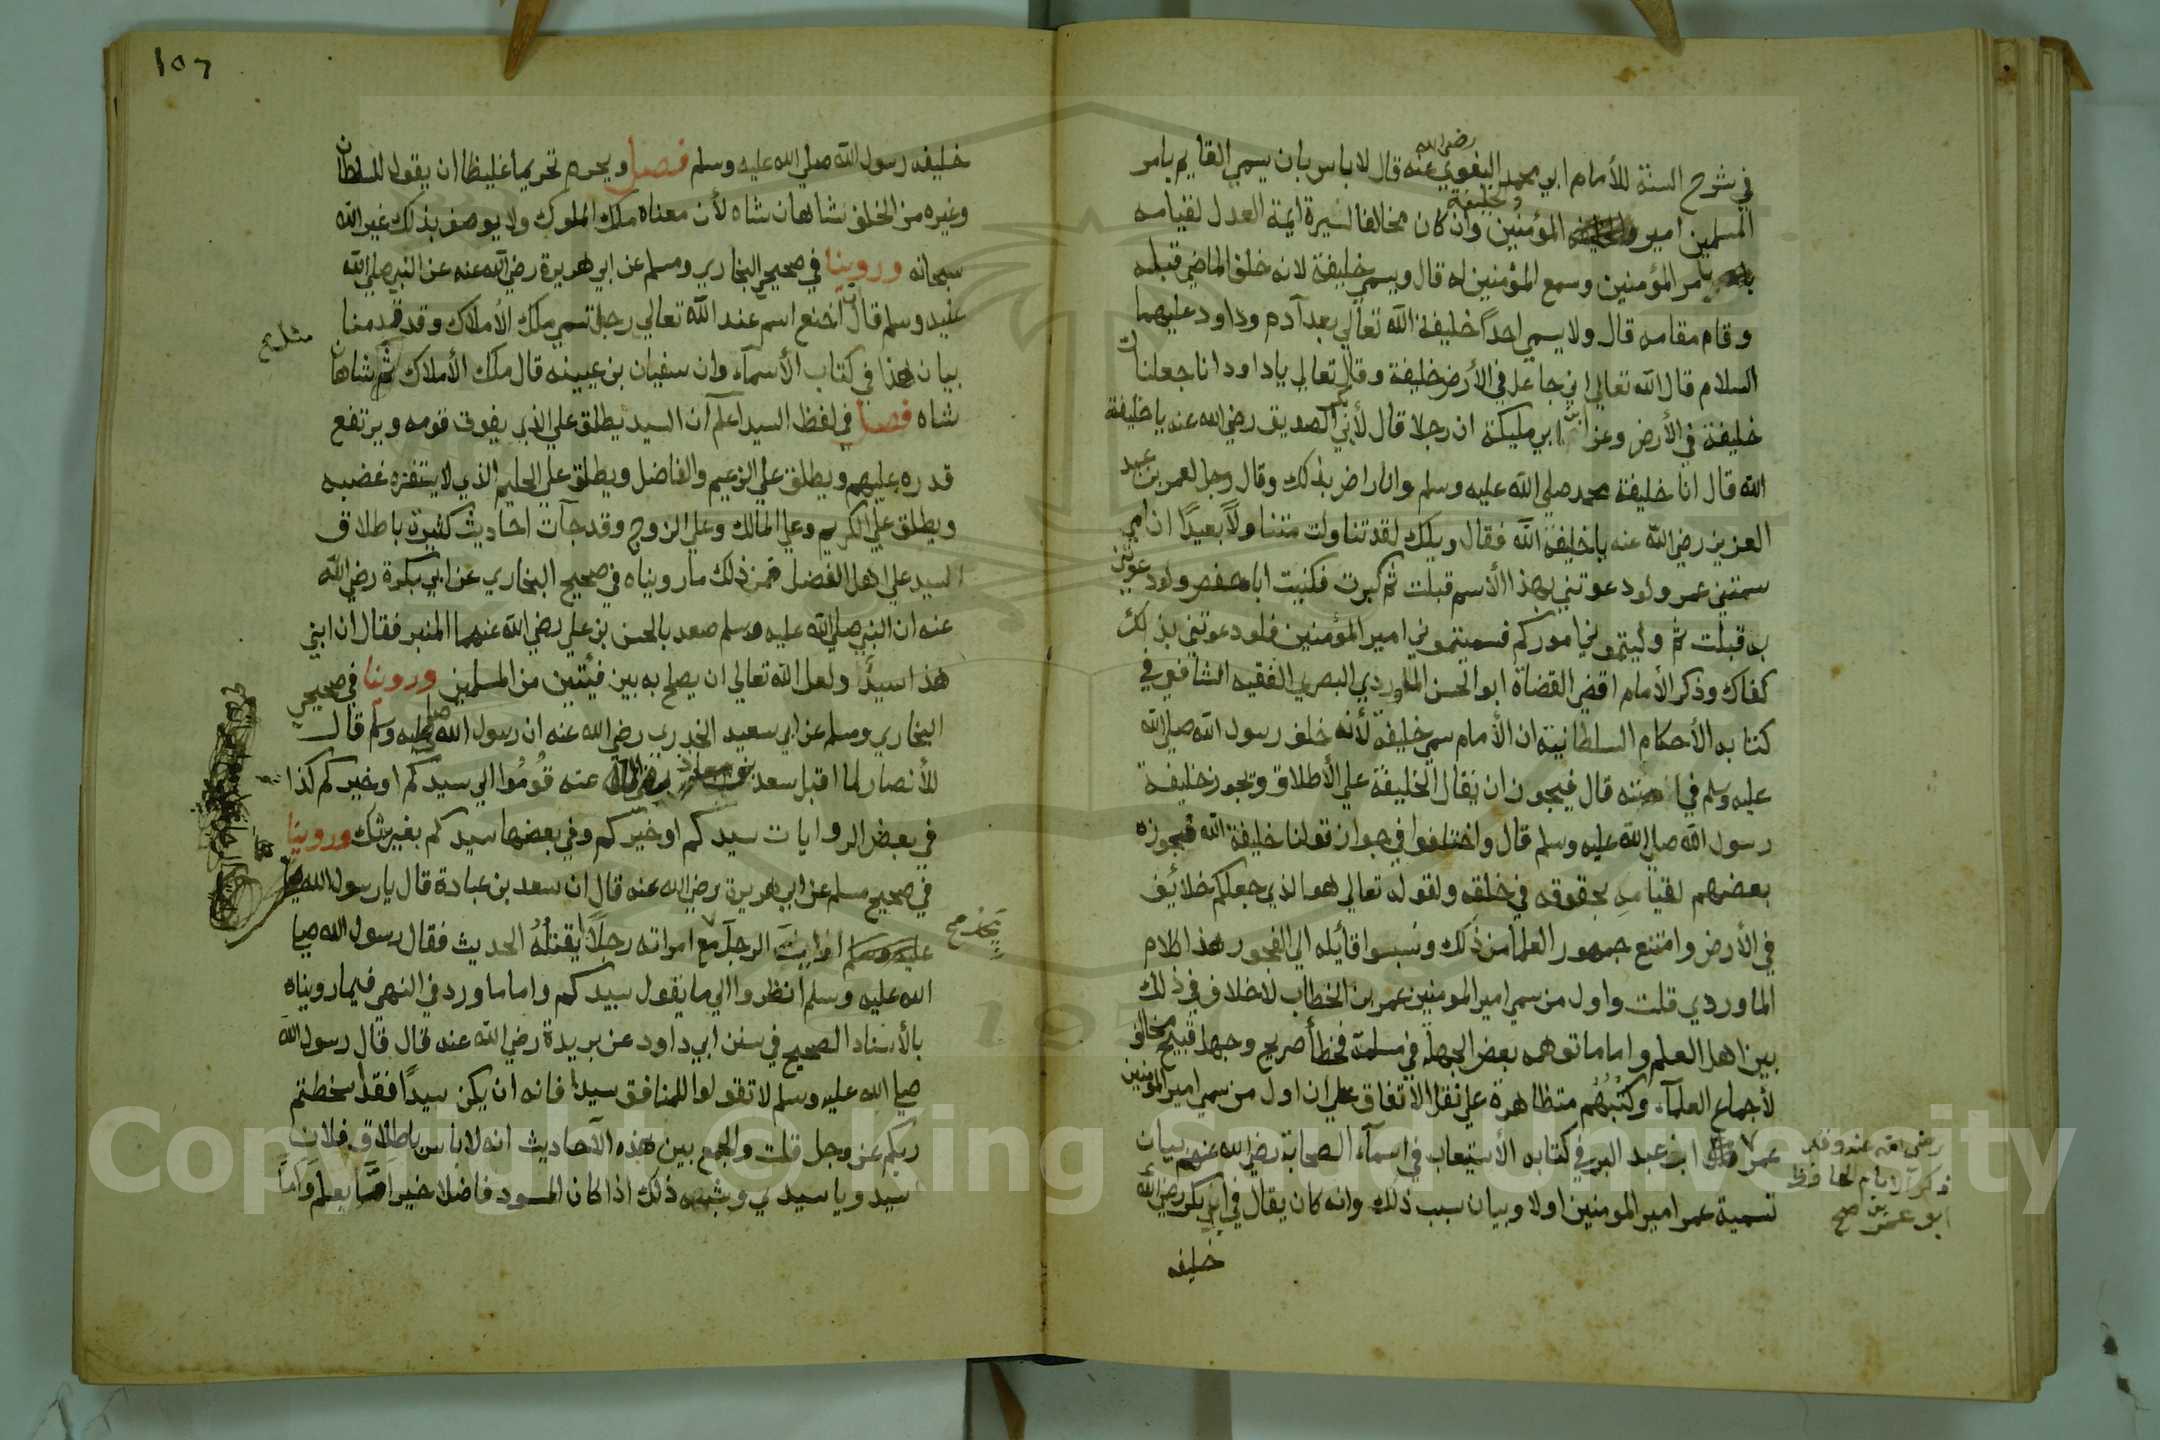 في شرح السنة للأمام ابي محمد البغوي رضي الله عنه قال لا باس بان يسمي القايم بامر
المسلمين امير المؤمنين وخليفة وان كان مخالفا لسيرة ايمة العدل لقيامه
بامر المؤمنين وسمع المؤمنين له قال ويسمي خليفة لانه خلف الماضي قبله
وقام مقامه قال ولا يسمي احدًا خليفة الله تعالي بعد آدم وداود عليهما
السلام قال الله تعالي اني جاعل في الأرض خليفة وقال تعالي ياداود انا جعلناك
خليفة في الأرض وعن ابن ابي مليكة ان رجلا قال لأبي بكر الصديق رضي الله عنه يا خليفة
الله قال انا خليفة محمد صلي الله عليه وسلم وانا راض بذلك وقال رجل لعمر بن عبد
العزيز رضي الله عنه يا خليفة الله فقال ويلك لقد تناولت متناولاً بعيدًا ان امي
سمتني عمر ولو دعوتني بهذا الأسم قبلت ثم كبرت فكنيت ابا حفص ولو دعوتني
به قبلت ثم وليتموني اموركم فسميتموني امير المؤمنين فلو دعوتني بذلك
كفاك وذكر الأمام اقضي القضاة ابو الحسن الماوردي البصري الفقيه الشافعي في
كتابه الأحكام السلطانية ان الأمام سمي خليفة لأنه خلف رسول الله صلي الله
عليه وسلم في امته قال فيجوز ان يقال الخليفة علي الأطلاق وتجوز خليفة
رسول الله صلي الله عليه وسلم قال واختلفوا في جواز قولنا خليفة الله فجوزه
بعضهم لقيامه بحقوقه في خلقه ولقوله تعالي هو الذي جعلكم خلائف
في الأرض وامتنع جمهور العلما من ذلك ونسبوا قايله الي الفجور هذا كلام
الماوردي قلت واول من سمي امير المومنين عمر بن الخطاب لا خلاف في ذلك
بين اهل العلم واما ما توهمه بعض الجهلة في مسلمة فخطأ صريح وجهل قبيح مخالف
لأجماع العلمآء وكُتُبُهُم متظاهرة علي نقل الاتفاق علي ان اول من سمي امير المومنين
عمر ابن عبد البر في كتابه الأستيعاب في اسمآء الصحابة رضي الله عنهم بيان
تسمية عمر امير المومنين اولا وبيان سبب ذلك وانه كان يقال في ابي بكر رضي الله
خليفه
رضي الله عنه وقد
ذكر الامام الحافظ
ابو عمر بن صح
١٥٦
خليفه رسول الله صلي الله عليه وسلم فصل ويحرم تحريما غليظا ان يقول للسلطان
وغيره من الخلق شاهان شاه لأن معناه ملك الملوك ولا يوصف بذلك غير الله
سبحانه وروينا في صحيحي البخاري ومسلم عن ابي هريرة رضي الله عنه عن النبي صلي الله
عليه وسلم قال ان اخنع اسم عند الله تعالي رجل تسمي ملك الأملاك وقد قدمنا
بيان هذا في كتاب الأسمآء وان سفيان بن عيينه قال ملك الأملاك شاهان
مثل صح
شاه فصل في لفظ السيد اعلم ان السيد يطلق علي الذي يفوق قومه ويرتفع
قدره عليهم ويطلق علي الزعيم والفاضل ويطلق علي الحليم الذي لا يستفزه غضبه
ويطلق علي الكريم وعلي المالك وعلي الزوج وقد جآت احاديث كثيرة باطلاق
السيد علي اهل الفضل فمن ذلك ما رويناه في صحيح البخاري عن ابي بكرة رضي الله
عنه ان النبي صلي الله عليه وسلم صعد بالحسن بن علي رضي الله عنهما المنبر فقال ان ابني
هذا سيدًا ولعل الله تعالي ان يصلح به بين فيئتين من المسلمين وروينا في صحيحي
البخاري ومسلم عن ابي سعيد الخدري رضي الله عنه ان رسول الله صلي عليه وسلم قال
للأنصار لما اقبل سعد بن معاذ رضي الله عنه قُومُوا الي سيدكم او خيركم كذا
في بعض الروايات سيدكم او خيركم وفي بعضها سيدكم بغير شك وروينا
في صحيح مسلم عن ابي هريرة رضي الله عنه قال ان سعد بن عبادة قال يا رسول الله
ارايت الرجل مع امراته رجلاً ايقتلُهُ الحديث فقال رسول الله صلي
يجد صح
الله عليه وسلم انظروا الي ما يقول سيدكم واما ما ورد في النهي فيما رويناه
بالأسناد الصحيح في سنن ابي داود عن بريدة رضي الله عنه قال قال رسول الله
صلي الله عليه وسلم لا تقولوا للمنافق سيدا فانه ان يكن سيدًا فقد اسخطتم
ربكم عز وجل قلت والجمع بين هذه الآحاديث انه لا باس باطلاق فلان
سيد ويا سيدي وشبهه ذلك اذا كان المسود فاضلا خيرا اما بعلم وَامّا
Copyright © King Saud University